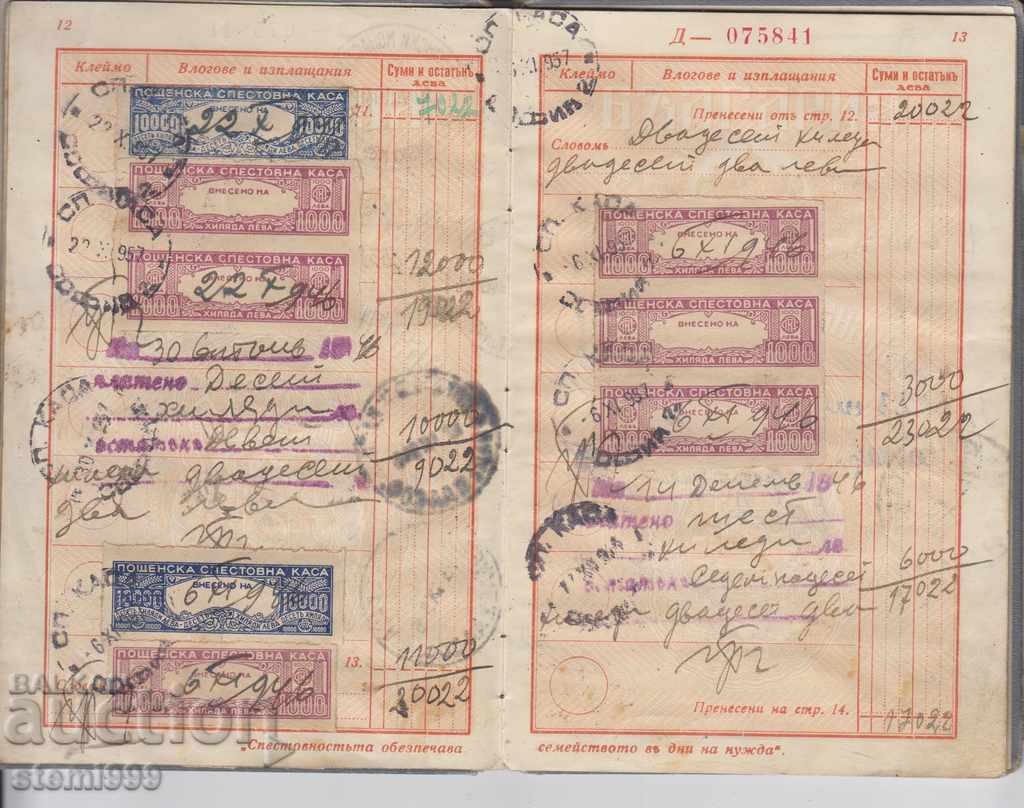 12
Клеймо Влогове и изплащания Суми и остатъкъ лева
11. 7022
ПОЩЕНСКА СПЕСТОВНА КАСА
ВНЕСЕНО НА
10000 227 10000
ПОЩЕНСКА СПЕСТОВНА КАСА
ВНЕСЕНО НА
1000 1000
ХИЛЯДА ЛЕВА
ПОЩЕНСКА СПЕСТОВНА КАСА
1000 227 946 1000
ХИЛЯДА ЛЕВА
12000
19022
30 1946
платено Десет
хиляди
10000
остатъкъ Девет
хиляди двадесет
9022
два лева
ПОЩЕНСКА СПЕСТОВНА КАСА
ВНЕСЕНО НА
10000 6 XI 946 10000
ДЕСЕТЬ ХИЛЯДИ ЛЕВА
ПОЩЕНСКА СПЕСТОВНА КАСА
13.
ВНЕСЕНО НА
1000 6 XI 946 1000
ХИЛЯДА ЛЕВА
11000
20022
„Спестовностьта обезпечава
Д— 075841
13
Клеймо Влогове и изплащания Суми и остатъкъ лева
Пренесени отъ стр. 12. 20022
Словомъ Двадесет хиляди
двадесет два лева
ПОЩЕНСКА СПЕСТОВНА КАСА
ВНЕСЕНО НА
1000 6 XI 946 1000
ХИЛЯДА ЛЕВА
ПОЩЕНСКА СПЕСТОВНА КАСА
ВНЕСЕНО НА
1000 1000
ХИЛЯДА ЛЕВА
ПОЩЕНСКА СПЕСТОВНА КАСА
ВНЕСЕНО НА
1000 6 XI 946 1000
ХИЛЯДА ЛЕВА
3000
23022
14 1946
платено шест
хиляди
6000
Седемнадесет
17022
хиляди двадесет два
Пренесени на стр. 14. 17022
семейството въ дни на нужда“.
СП. КАСА
СОФИЯ 2
auction
stemi999